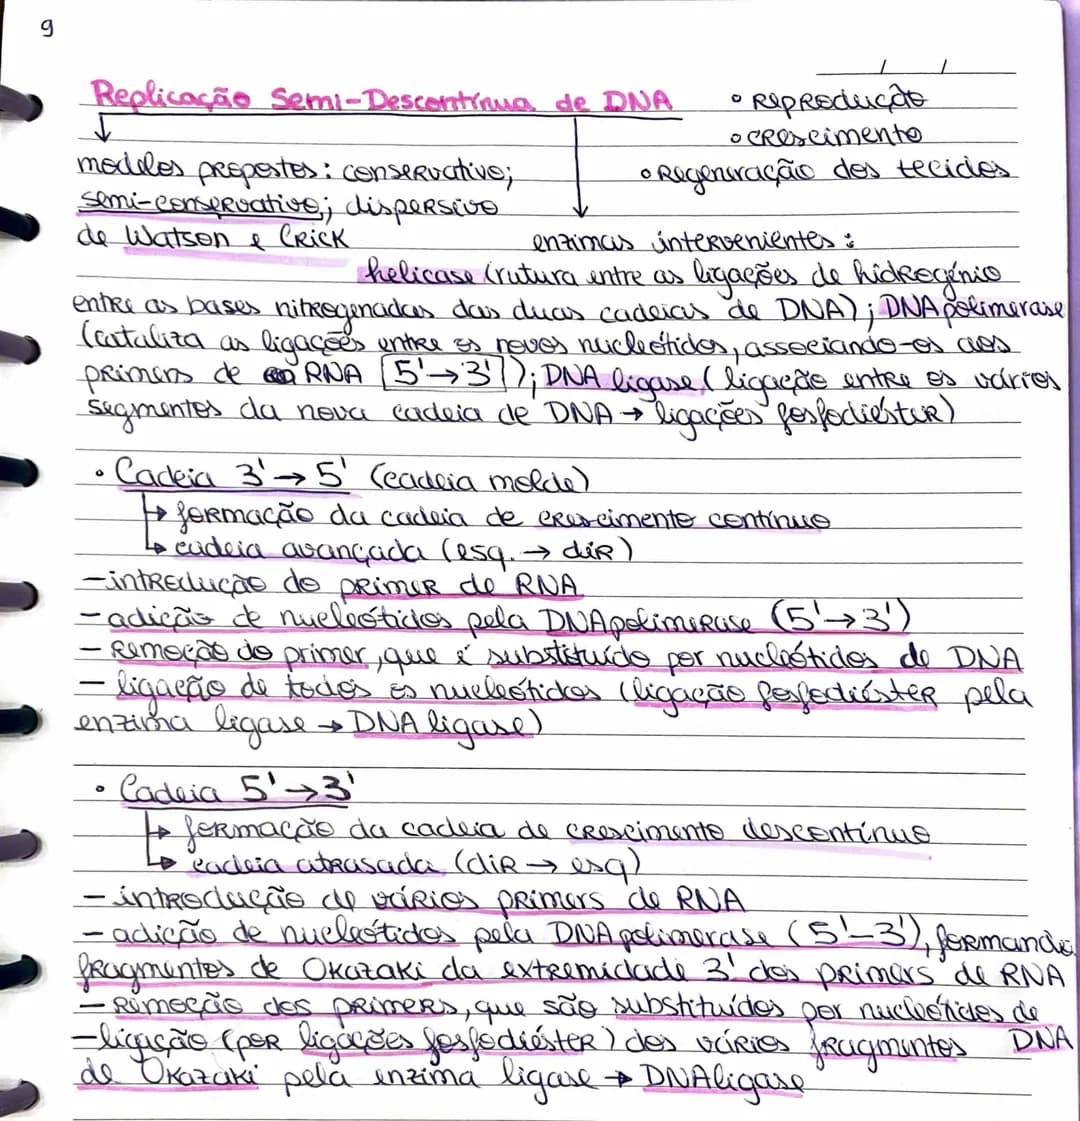 9
Replicação Semi-Descontínua de DNA
• Reprodução
• crescimento
• Regeneração dos tecidos
modelos propostos: conservativo;
semi-conservativo; dispersivo
de Watson e Crick
enzimas intervenientes:
helicase (rutura entre as ligações de hidrogénio
entre as bases nitrogenadas das duas cadeias de DNA); DNA polimerase
(cataliza as ligações entre os novos nucleótidos, associando-os aos
primers de RNA 5'→3'); DNA ligase (ligação entre os vários
segmentos da nova cadeia de DNA → ligações fosfodiéster)
• Cadeia 3'→5' (cadeia molde)
↳ formação da cadeia de crescimento contínuo
↳ cadeia avançada (esq. → dir)
- introdução do primer de RNA
- adição de nucleótidos pela DNA polimerase (5'→3')
- Remoção do primer, que é substituído por nucleótidos de DNA
- ligação de todos os nucleótidos (ligação fosfodiéster pela
enzima ligase → DNA ligase)
• Cadeia 5'→3'
↳ formação da cadeia de crescimento descontínuo
↳ cadeia atrasada (dir → esq)
- introdução de vários primers de RNA
- adição de nucleótidos pela DNA polimerase (5'-3'), formando
fragmentos de Okazaki da extremidade 3' dos primers de RNA
- Remoção dos primers, que são substituídos por nucleótidos de
DNA
- ligação (por ligações fosfodiéster) dos vários fragmentos
de Okazaki pela enzima ligase → DNA ligase